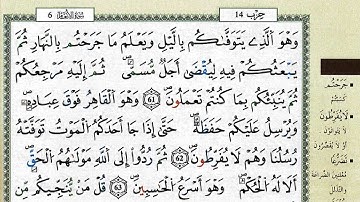 سورة الأنعام 6
حزب 14
وَهُوَ ٱلَّذِى يَتَوَفَّىٰكُم بِٱلَّيْلِ وَيَعْلَمُ مَا جَرَحْتُم بِٱلنَّهَارِ ثُمَّ
يَبْعَثُكُمْ فِيهِ لِيُقْضَىٰ أَجَلٌ مُّسَمًّى ثُمَّ إِلَيْهِ مَرْجِعُكُمْ
ثُمَّ يُنَبِّئُكُم بِمَا كُنتُمْ تَعْمَلُونَ 61 وَهُوَ ٱلْقَاهِرُ فَوْقَ عِبَادِهِۦ
وَيُرْسِلُ عَلَيْكُمْ حَفَظَةً حَتَّىٰ إِذَا جَآءَ احَدَكُمُ ٱلْمَوْتُ تَوَفَّتْهُ
رُسُلُنَا وَهُمْ لَا يُفَرِّطُونَ 62 ثُمَّ رُدُّوٓا۟ إِلَى ٱللَّهِ مَوْلَىٰهُمُ ٱلْحَقِّ
أَلَا لَهُ ٱلْحُكْمُ وَهُوَ أَسْرَعُ ٱلْحَٰسِبِينَ 63 قُلْ مَن يُنَجِّيكُم مِّن
جَرَحْتُم
كسبتم
لَا يُفَرِّطُونَ